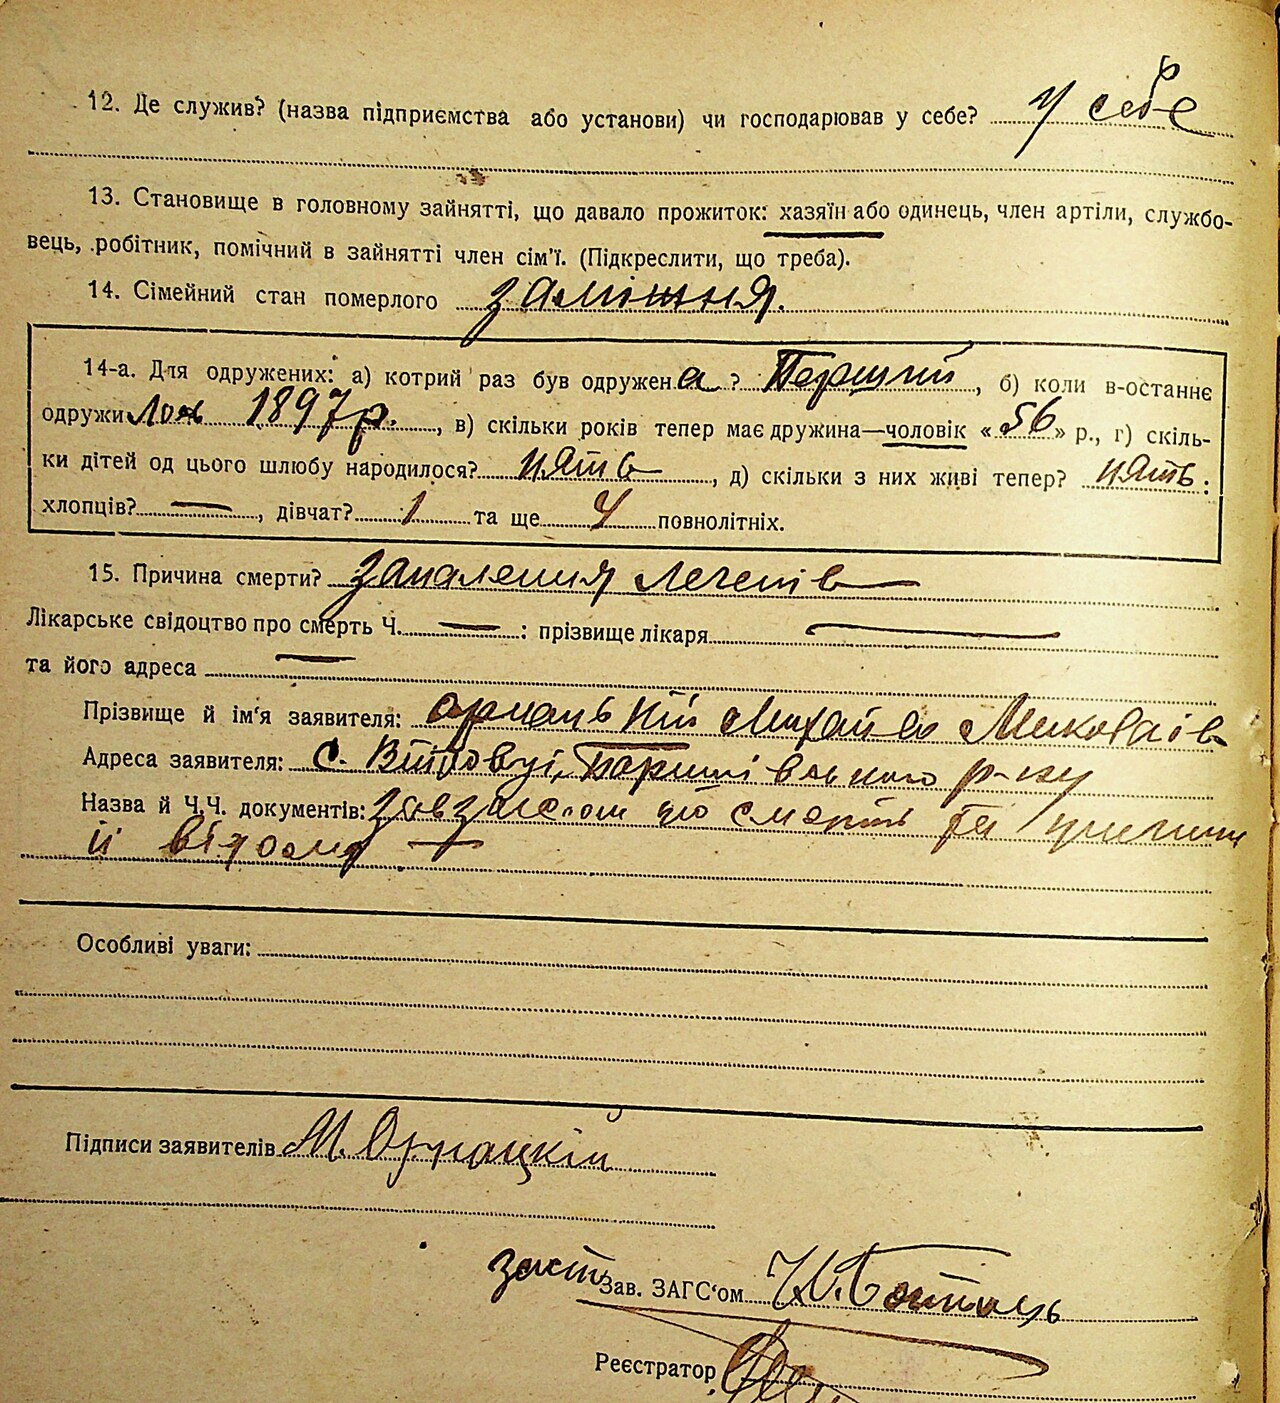 12. Де служив? (назва підприємства або установи) чи господарював у себе? у себе
13. Становище в головному зайнятті, що давало прожиток: хазяїн або одинець, член артіли, службо-
вець, робітник, помічний в зайнятті член сім'ї. (Підкреслити, що треба).
14. Сімейний стан померлого заміжня.
14-а. Для одружених: а) котрий раз був одружена? Перший, б) коли в-останнє
одружилась 1897 р., в) скільки років тепер має дружина—чоловік «56» р., г) скіль-
ки дітей од цього шлюбу народилося? пять, д) скільки з них живі тепер? пять:
хлопців? —, дівчат? 1 та ще 4 повнолітніх.
15. Причина смерти? Запалення легенів
Лікарське свідоцтво про смерть Ч. — : прізвище лікаря —
та його адреса —
Прізвище й ім'я заявителя: Михайло Миколаїв
Адреса заявителя: с. р-ну
Назва й Ч.Ч. документів: що смерть
й відома
Особливі уваги:
Підписи заявителів М.
заст Зав. ЗАГС'ом
Реєстратор